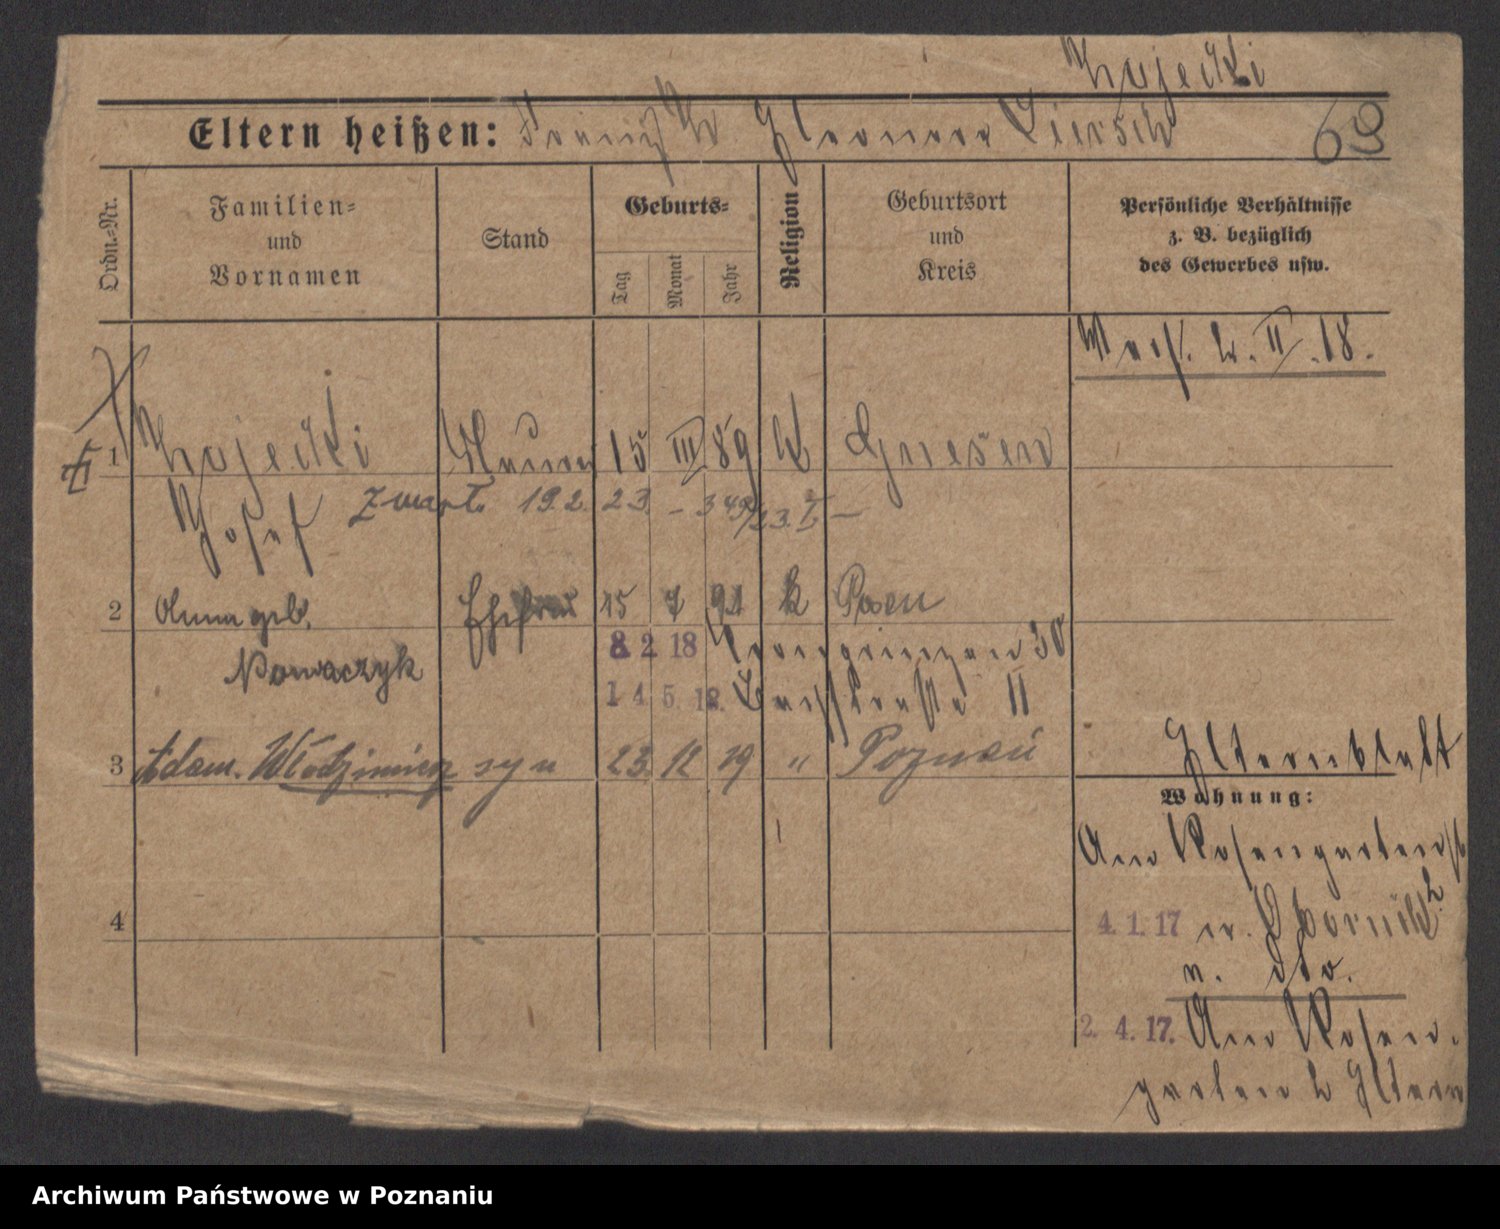 Eltern heißen:
69
Ordn.-Nr.
Familien-
und
Vornamen
Stand
Geburts-
Tag
Monat
Jahr
Religion
Geburtsort
und
Kreis
Persönliche Verhältnisse
z. B. bezüglich
des Gewerbes usw.
II. 18.
1 15 III 89 k Gnesen
Josef
zmarł 19.2.23.
2 Anna geb. Ehefrau 15 7 91 k Posen
Nowaczyk
8. 2. 18 Kronprinzen 30
14. 5. 18. 11
3 Adam. Włodzimierz syn 23. 12 19 " Poznań
Elternblatt
Wohnung:
Am Rosengarten
4. 1. 17
n. dto.
2. 4. 17. Am Rosen-
garten b Eltern
4
Archiwum Państwowe w Poznaniu